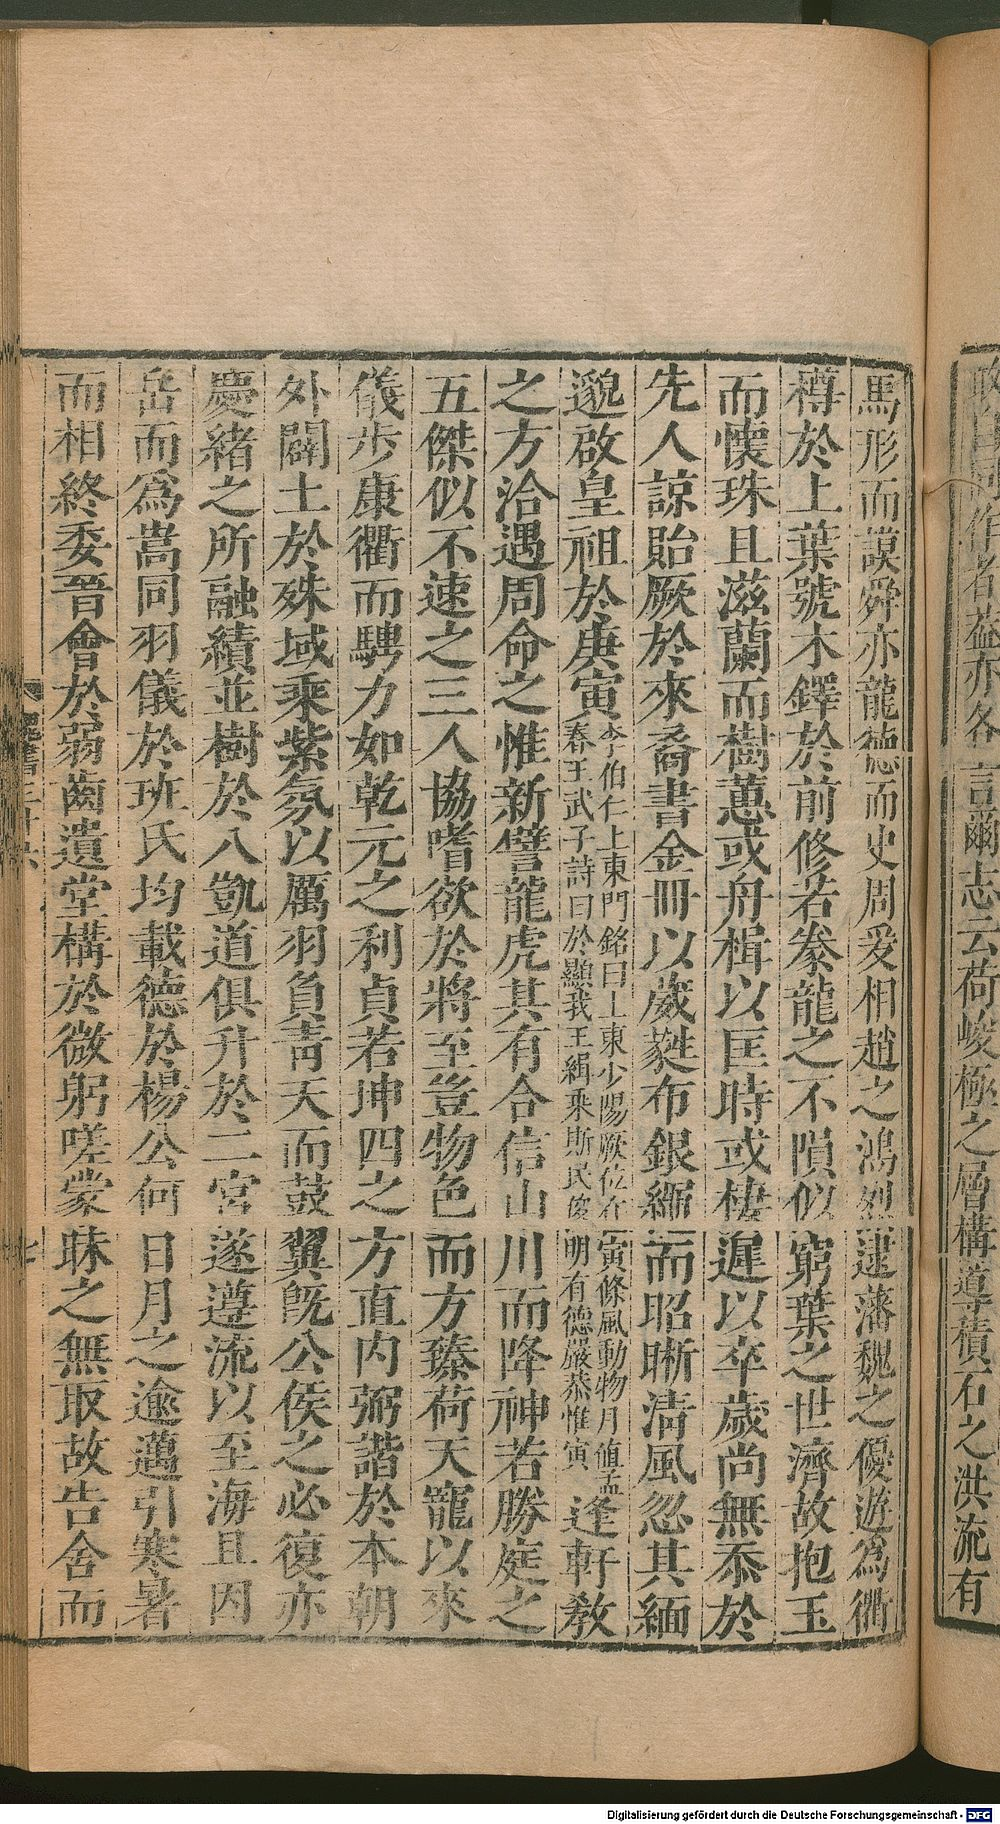 言爾志云荷峻極之層構導積石之洪流有
馬形而謨舜亦龍德而史周爰相趙之鴻烈逮藩魏之優遊為衢
樽於上葉號木鐸於前修若豢龍之不隕似窮葉之世濟故抱玉
而懷珠且滋蘭而樹蕙或舟楫以匡時或棲遲以卒歲尚無忝於
先人諒貽厥於來裔書金冊以葳蕤布銀繩而昭晣淸風忽其緬
邈啟皇祖於庚寅李伯仁上東門銘曰上東少陽厥位在寅條風動物月值孟春王武子詩曰於顯我王緝熙斯民俊明有德嚴恭惟寅逢軒敎
之方洽遇周命之惟新譬龍虎其有合信山川而降神若勝庭之
五傑似不速之三人協嗜欲於將至豈物色而方臻荷天寵以來
儀步康衢而騁力如乾元之利貞若坤四之方直內弼諧於本朝
外闢土於殊域乘紫氛以厲羽負靑天而鼓翼旣公侯之必復亦
慶緒之所融績並樹於八凱道俱升於二宮遂遵流以至海且因
岳而爲嵩同羽儀於班氏均載德於楊公何日月之逾邁引寒暑
而相終委晉會於弱齒遺堂構於微躬嗟蒙昧之無取故告舍而